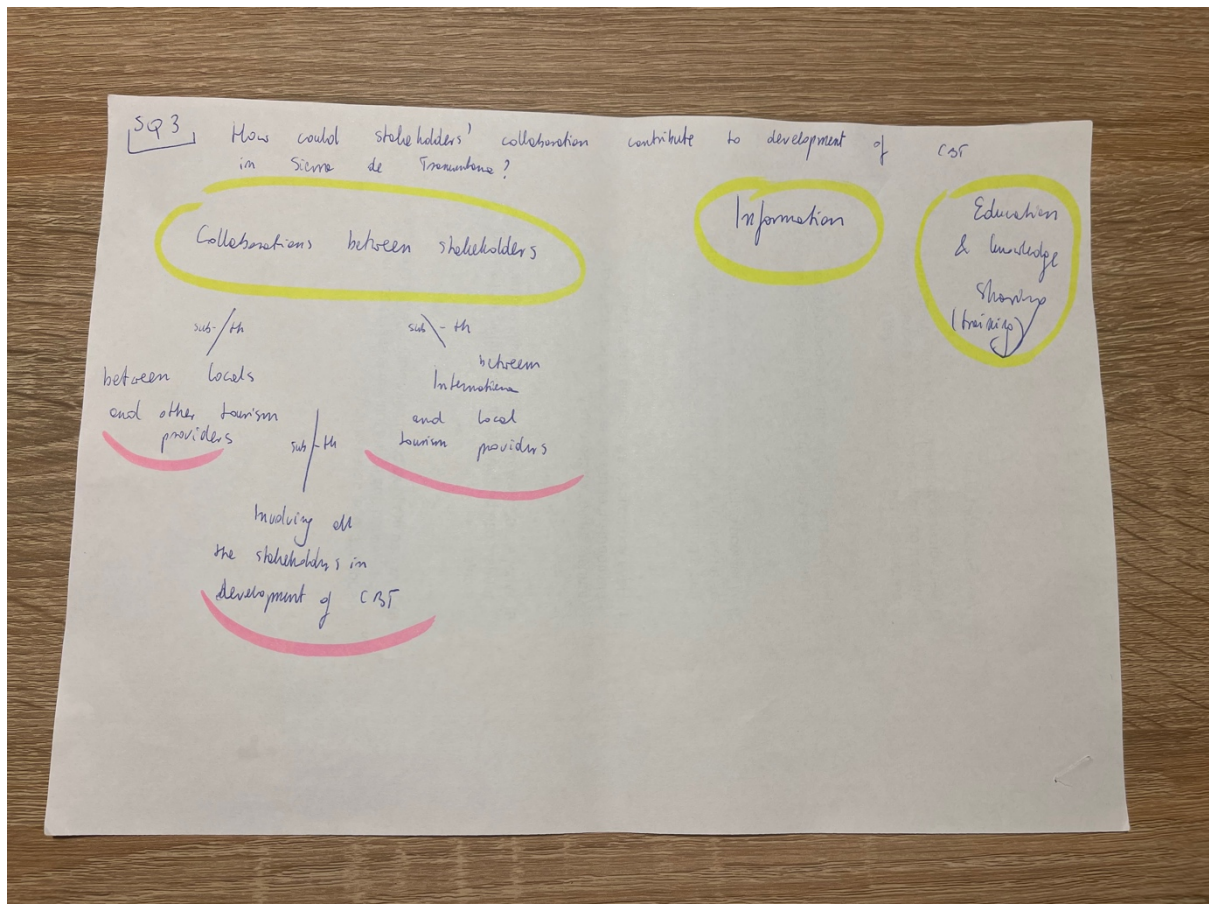 SQ 3
How could stakeholders' collaboration contribute to development of CBT
in Sierra de Tramuntana?
Collaborations between stakeholders
Information
Education
& knowledge
Sharing
(training)
sub-th
sub-th
between locals
and other tourism
providers
between
Internationa
and local
tourism providers
sub-th
Involving all
the stakeholders in
development of CBT